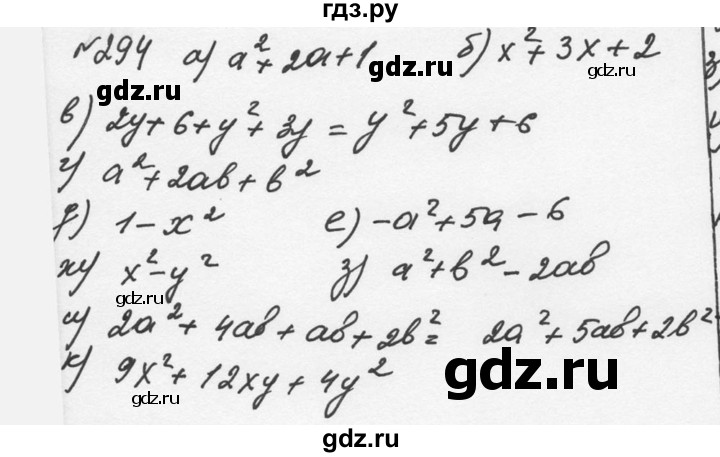 гдз.ру
№294 а) a²+2a+1 б) x²+3x+2
gdz.ru gdz.ru
gdz.ru
в) 2y+6+y²+3y = y²+5y+6
г) a²+2ab+b²
gdz.ru
д) 1-x² е) -a²+5a-6
ж) x²-y² з) a²+b²-2ab
gdz.ru
и) 2a²+4ab+ab+2b²= 2a²+5ab+2b²
к) 9x²+12xy+4y²
gdz.ru
gdz.ru
gdz.ru